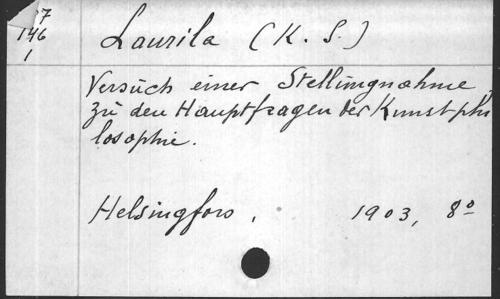 7
146
1
Laurila (K. S.)
Versuch einer Stellungnahme
zu den Hauptfragen der Kunstphi
losophie.
Helsingfors, 1903, 8º